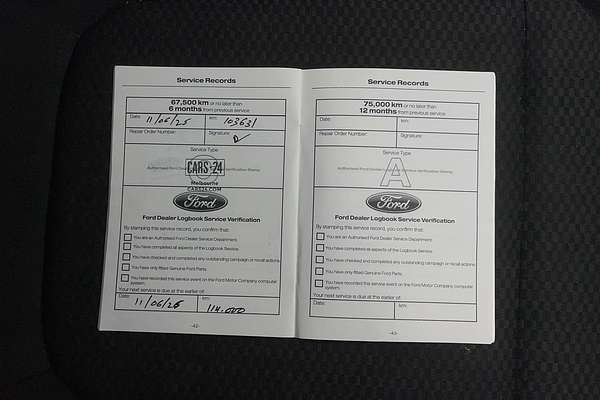 Service Records
67,500 km or no later than
6 months from previous service
Date: 11/06/25 km: 103631
Repair Order Number: Signature:
Service Type
CARS24
Melbourne
CARS24.COM
Ford
Ford Dealer Logbook Service Verification
By stamping this service record, you confirm that:
You are an Authorised Ford Dealer Service Department
You have completed all aspects of the Logbook Service
You have checked and completed any outstanding campaign or recall actions
You have only fitted Genuine Ford Parts
You have recorded this service event on the Ford Motor Company computer
system.
Your next service is due at the earlier of:
Date: 11/06/26 km:
-42-
Service Records
75,000 km or no later than
12 months from previous service
Date: km:
Repair Order Number: Signature:
Service Type
A
Authorised Ford Dealer Service Verification Stamp
Ford
Ford Dealer Logbook Service Verification
By stamping this service record, you confirm that:
You are an Authorised Ford Dealer Service Department
You have completed all aspects of the Logbook Service
You have checked and completed any outstanding campaign or recall actions
You have only fitted Genuine Ford Parts
You have recorded this service event on the Ford Motor Company computer
system.
Your next service is due at the earlier of:
Date: km:
-43-